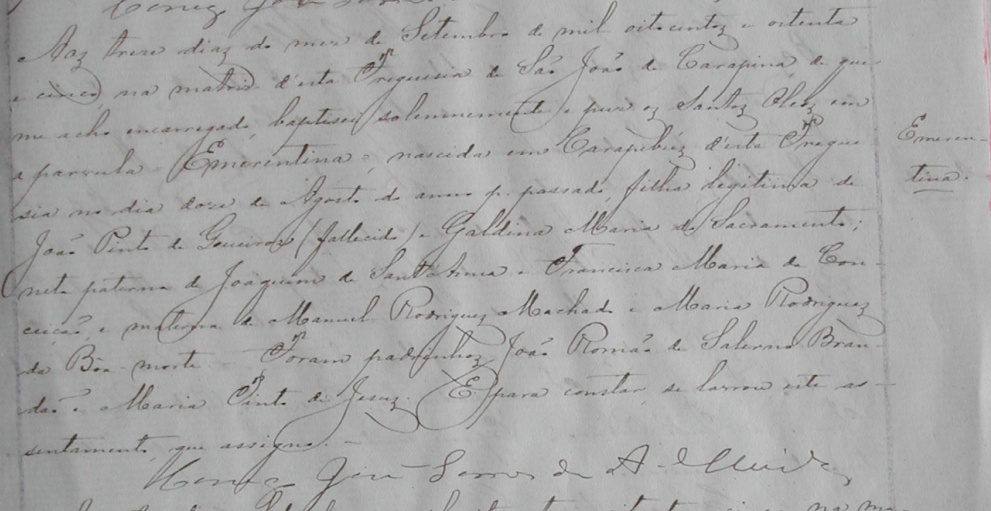 Aaz treze diaz do mez de Setembro de mil oitocentoz e oitenta
e cinco, na matriz d'esta Freguesia de São João de Carapina, de que
me acho encarregado, baptisei solemnemente e puz oz Santoz Oleoz em
a parvula = Emerentina = nascida em Carapebúz d'esta Fregue-
sia no dia doze de Agosto do anno p. passado, filha legitima de
João Pinto de (fallecido) e Galdina Maria do Sacramento;
neta paterna de Joaquim de Sant'Anna e Francisca Maria da Con-
ceição, e materna de Manuel Rodriguez Machado e Maria Rodriguez
da Bôa-morte. Foram padrinhoz João Romão de Salerno Bran-
dão e Maria Pinto de Jesuz. E para constar, se lavrou este as-
sentamento, que assigno. —
Emeren-
tina.
José de Almeida